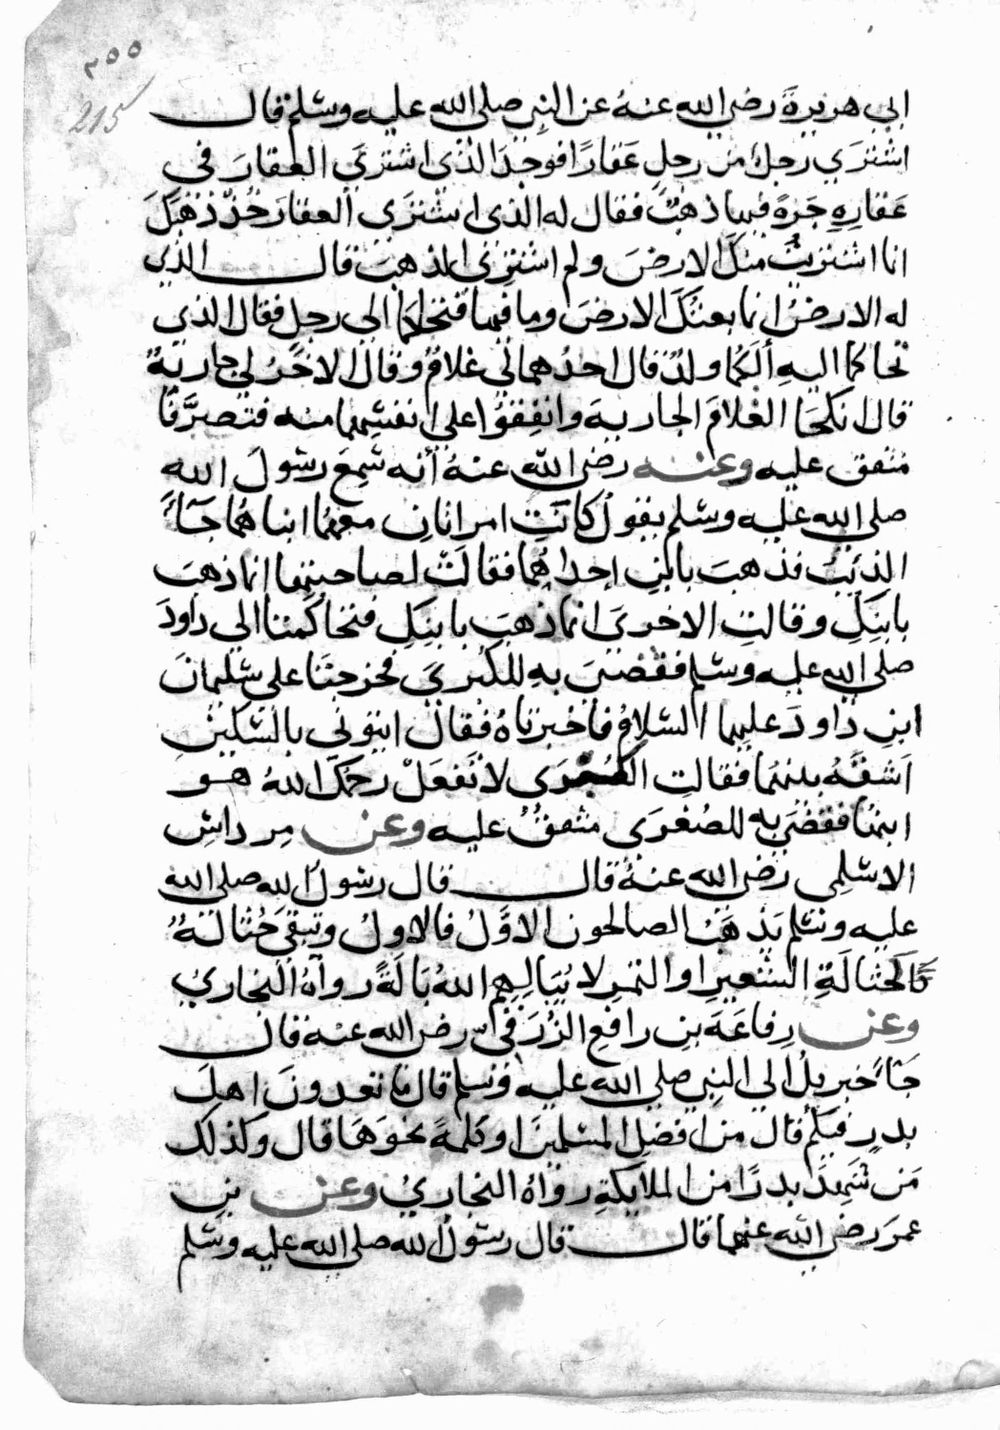 ٢٥٥
215
ابي هريرةَ رضي الله عنهُ عن النبي صلى الله عليه وسلم قال
اشترَي رجلٌ من رجلٍ عَقارًا فوجدَ الذي اشتري العقارَ في
عَقارِهِ جَرَةً فيها ذهبٌ فقال له الذي اشترَى العقارَ خُذْ ذهبَكَ
انما اشتريْتُ منكَ الارضَ ولم اشترِى الذهبَ قال الذي
له الارضُ انما بعتُكَ الارضَ وما فيها فتحاكما الى رجلٍ فقال الذي
تحاكما اليهِ ألَكُما ولدٌ قال احدُهما لي غلامٌ وقال الاخرُ لي جاريةٌ
قال انكحَا الغلامَ الجاريةَ وانفِقوُا على انفسِهما منه فتصرَّفا
متفق عليه وعنه رضي الله عنهُ أنه سَمِعَ رسُولَ الله
صلى الله عليه وسلم يقول كانَتِ امراتانِ معهُما ابناهُما جَآءَ
الذئبُ فذهبَ بابْنِ إحداهُما فقالَتْ لصاحبتِها انما ذهبَ
بابنِكِ وقالتِ الاخرىَ انما ذهبَ بابنِكِ فتحاكمتا الي داودَ
صلى الله عليه وسلم فقضىَ بهِ للكُبرىَ فخرجتَا على سُليمانَ
ابنِ داودَ عليهما السَّلامُ فاخْبرتاهُ فقال ايتوني بالسِّكينِ
اَشقُّهُ بينهُما فقالتِ الصُغرَى لا تَفعَلْ رحمكَ اللهُ هو
ابنُها فقضَى به للصُغرَى متفقٌ عليه وعن مِرداسِ
الاسْلِمي رضي الله عنهُ قال قال رسُولُ الله صلى الله
عليه وسلم يَذهَبُ الصالحون الاوَّلُ فالاولُ وتبقىَ حُثالةٌ
كَالحُثالَةِ الشعيرِ او التمرِ لا يُبَالِهِم اللهُ بَالَةً رواهُ البخاريُ
وعن رِفاعَةَ بنِ رافع الزُرَقيَ رضي الله عنه قال
جَآءَ جبريلُ الى النبيِ صلى الله عليه وسلم قال ما تعدونَ اهلَ
بدرٍ فيكُم قال من افضلِ المسلمينَ اوكلمةً نحوَهَا قال وكذلك
مَن شَهِدَ بدرًا من الملايكةِ رواهُ البخاريُ وعن بنِ
عمرَ رضي الله عنهما قال قال رسُولُ الله صلى الله عليه وسلم